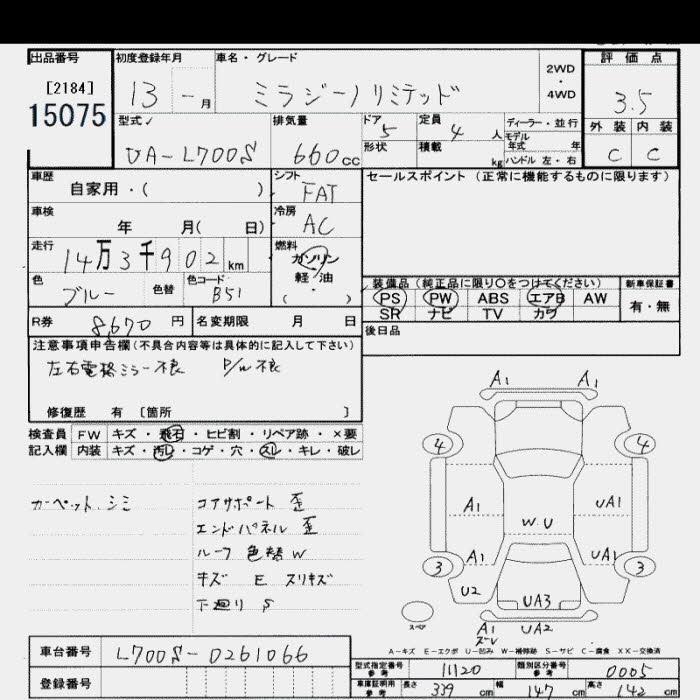 出品番号 初度登録年月 車名・グレード 評価点
[2184] 13 - 月 ミラジーノリミテッド 2WD ・ 4WD 3.5
15075
型式 排気量 ドア 定員 ディーラー・並行 外装 内装
UA-L700S 660cc 5 4人 モデル年式 年 C C
形状 積載 kg ハンドル 左・右
車歴 シフト セールスポイント (正常に機能するものに限ります)
自家用・( ) FAT
車検 冷房
年 月( 日) AC
走行 燃料
14万3千902km ガソリン
軽・油
・( )
色 色替 色コード 装備品 (純正品に限り○をつけてください) 新車保証書
ブルー B51 PS PW ABS エアB AW 有・無
SR ナビ TV カワ
R券 8,670円 名変期限 月 日 後日品
注意事項申告欄 (不具合内容等は具体的に記入して下さい)
左右電格ミラー不良 P/W不良
修復歴 有 [箇所 ]
検査員 FW キズ・飛石・ヒビ割・リペア跡・×要
記入欄 内装 キズ・汚レ・コゲ・穴・スレ・キレ・破レ
カーペット シミ コアサポート 歪
エンドパネル 歪
ルーフ 色替 W
キズ E スリキズ
下廻り S
A1 A1
4 4
A1 UA1
W.U
A1 UA1
3 3
U2
UA3
スペア A1 UA2
ズレ
A-キズ E-エクボ U-凹み W-補修跡 S-サビ C-腐食 XX-交換済
車台番号 L700S-0261066
登録番号
型式指定番号 参考 11120 類別区分番号 参考 0005
車庫証明用 参考 長さ 339 cm 幅 147 cm 高さ 142 cm